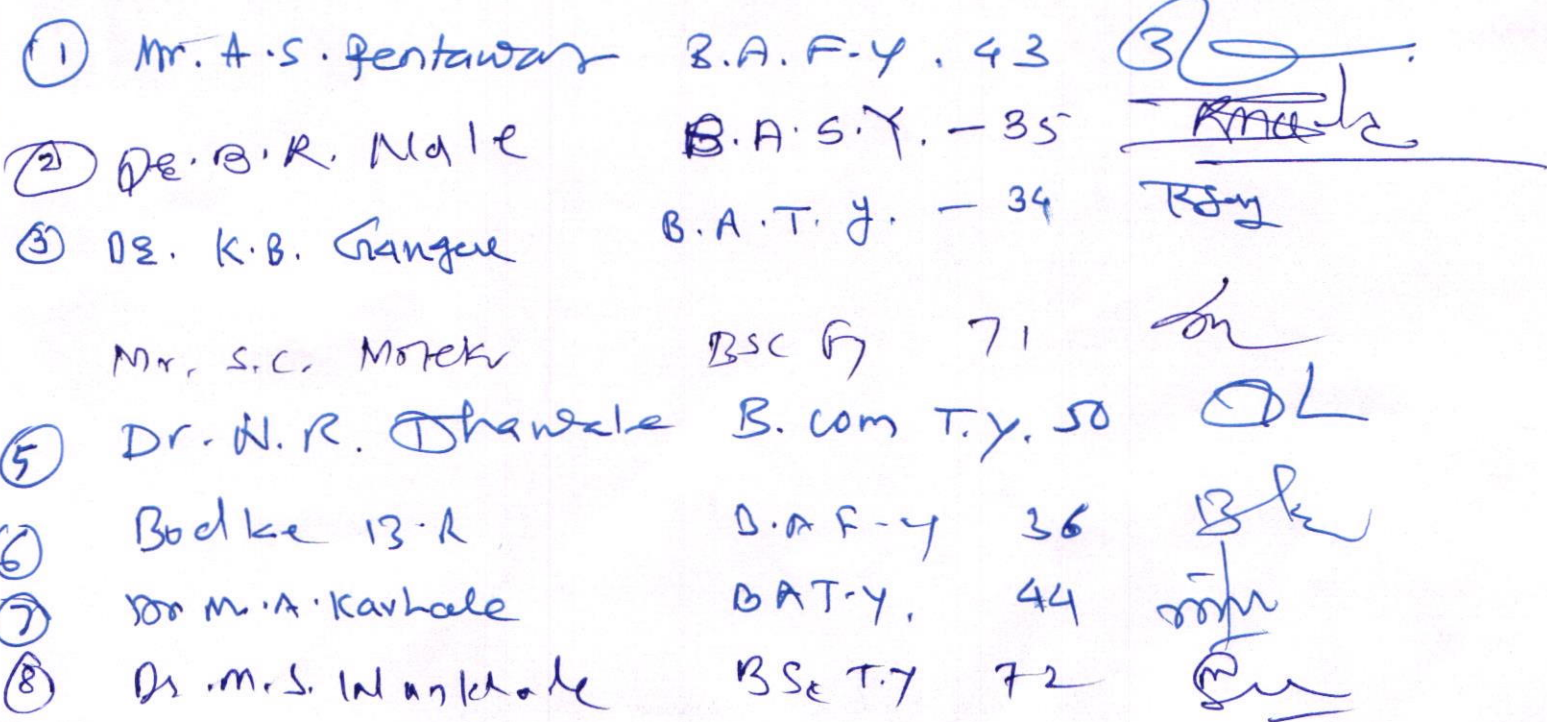 ① Mr. A.S. Pentawar B.A. F-Y. 43
② Dr. B.R. Nale B.A.S.Y. - 35
③ Dr. K.B. Gangle B.A.T.Y. - 34
Mr. S.C. BSC Fy 71
⑤ Dr. N.R. Dhawale B. com T.y. 50
⑥ Bodke B.R B.A F-y 36
⑦ Dr M.A. Karhale BAT-y. 44
⑧ Dr. M.S. Wankhade BSc T.y 72